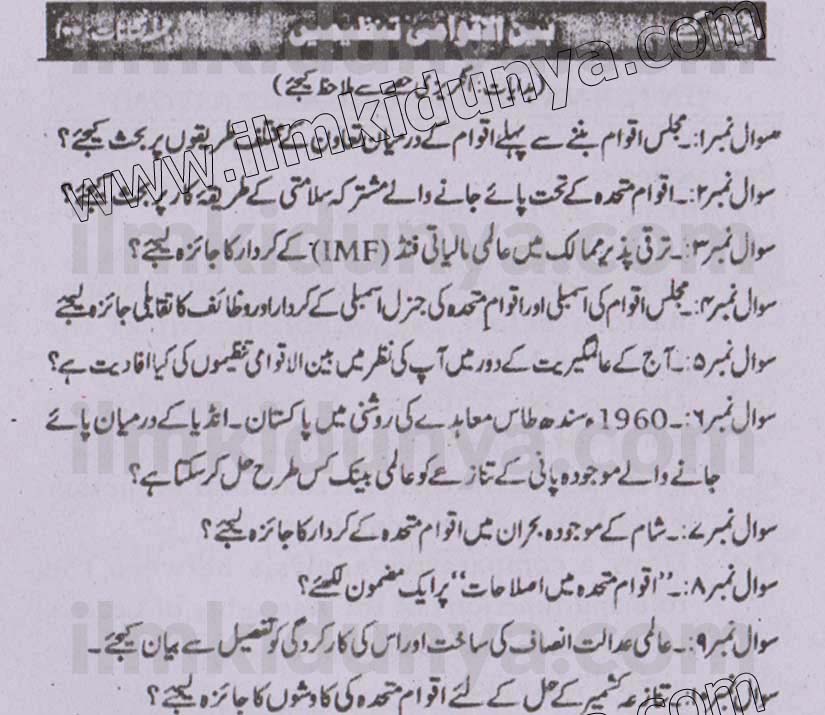 بین الاقوامی تنظیمیں
(ہدایات: انگریزی حصے سے ملاحظہ کیجئے)
سوال نمبر۱:۔ مجلس اقوام بننے سے پہلے اقوام کے درمیان تعاون کے مختلف طریقوں پر بحث کیجئے؟
سوال نمبر۲:۔ اقوام متحدہ کے تحت پائے جانے والے مشترکہ سلامتی کے طریقۂ کار پر بحث کیجئے؟
سوال نمبر۳:۔ ترقی پذیر ممالک میں عالمی مالیاتی فنڈ (IMF) کے کردار کا جائزہ لیجئے؟
سوال نمبر۴:۔ مجلس اقوام کی اسمبلی اور اقوام متحدہ کی جنرل اسمبلی کے کردار اور وظائف کا تقابلی جائزہ لیجئے
سوال نمبر۵:۔ آج کے عالمگیریت کے دور میں آپ کی نظر میں بین الاقوامی تنظیموں کی کیا افادیت ہے؟
سوال نمبر۶:۔ 1960ء سندھ طاس معاہدے کی روشنی میں پاکستان۔ انڈیا کے درمیان پائے
جانے والے موجودہ پانی کے تنازعے کو عالمی بینک کس طرح حل کر سکتا ہے؟
سوال نمبر۷:۔ شام کے موجودہ بحران میں اقوام متحدہ کے کردار کا جائزہ لیجئے؟
سوال نمبر۸:۔ ”اقوام متحدہ میں اصلاحات“ پر ایک مضمون لکھئے؟
سوال نمبر۹:۔ عالمی عدالت انصاف کی ساخت اور اس کی کارکردگی کو تفصیل سے بیان کیجئے۔
سوال نمبر تنازعہ کشمیر کے حل کے لئے اقوام متحدہ کی کاوشوں کا جائزہ لیجئے؟
www.ilmkidunya.com
ilmkidunya.com
ilmkidunya.com
ilmkidunya.com